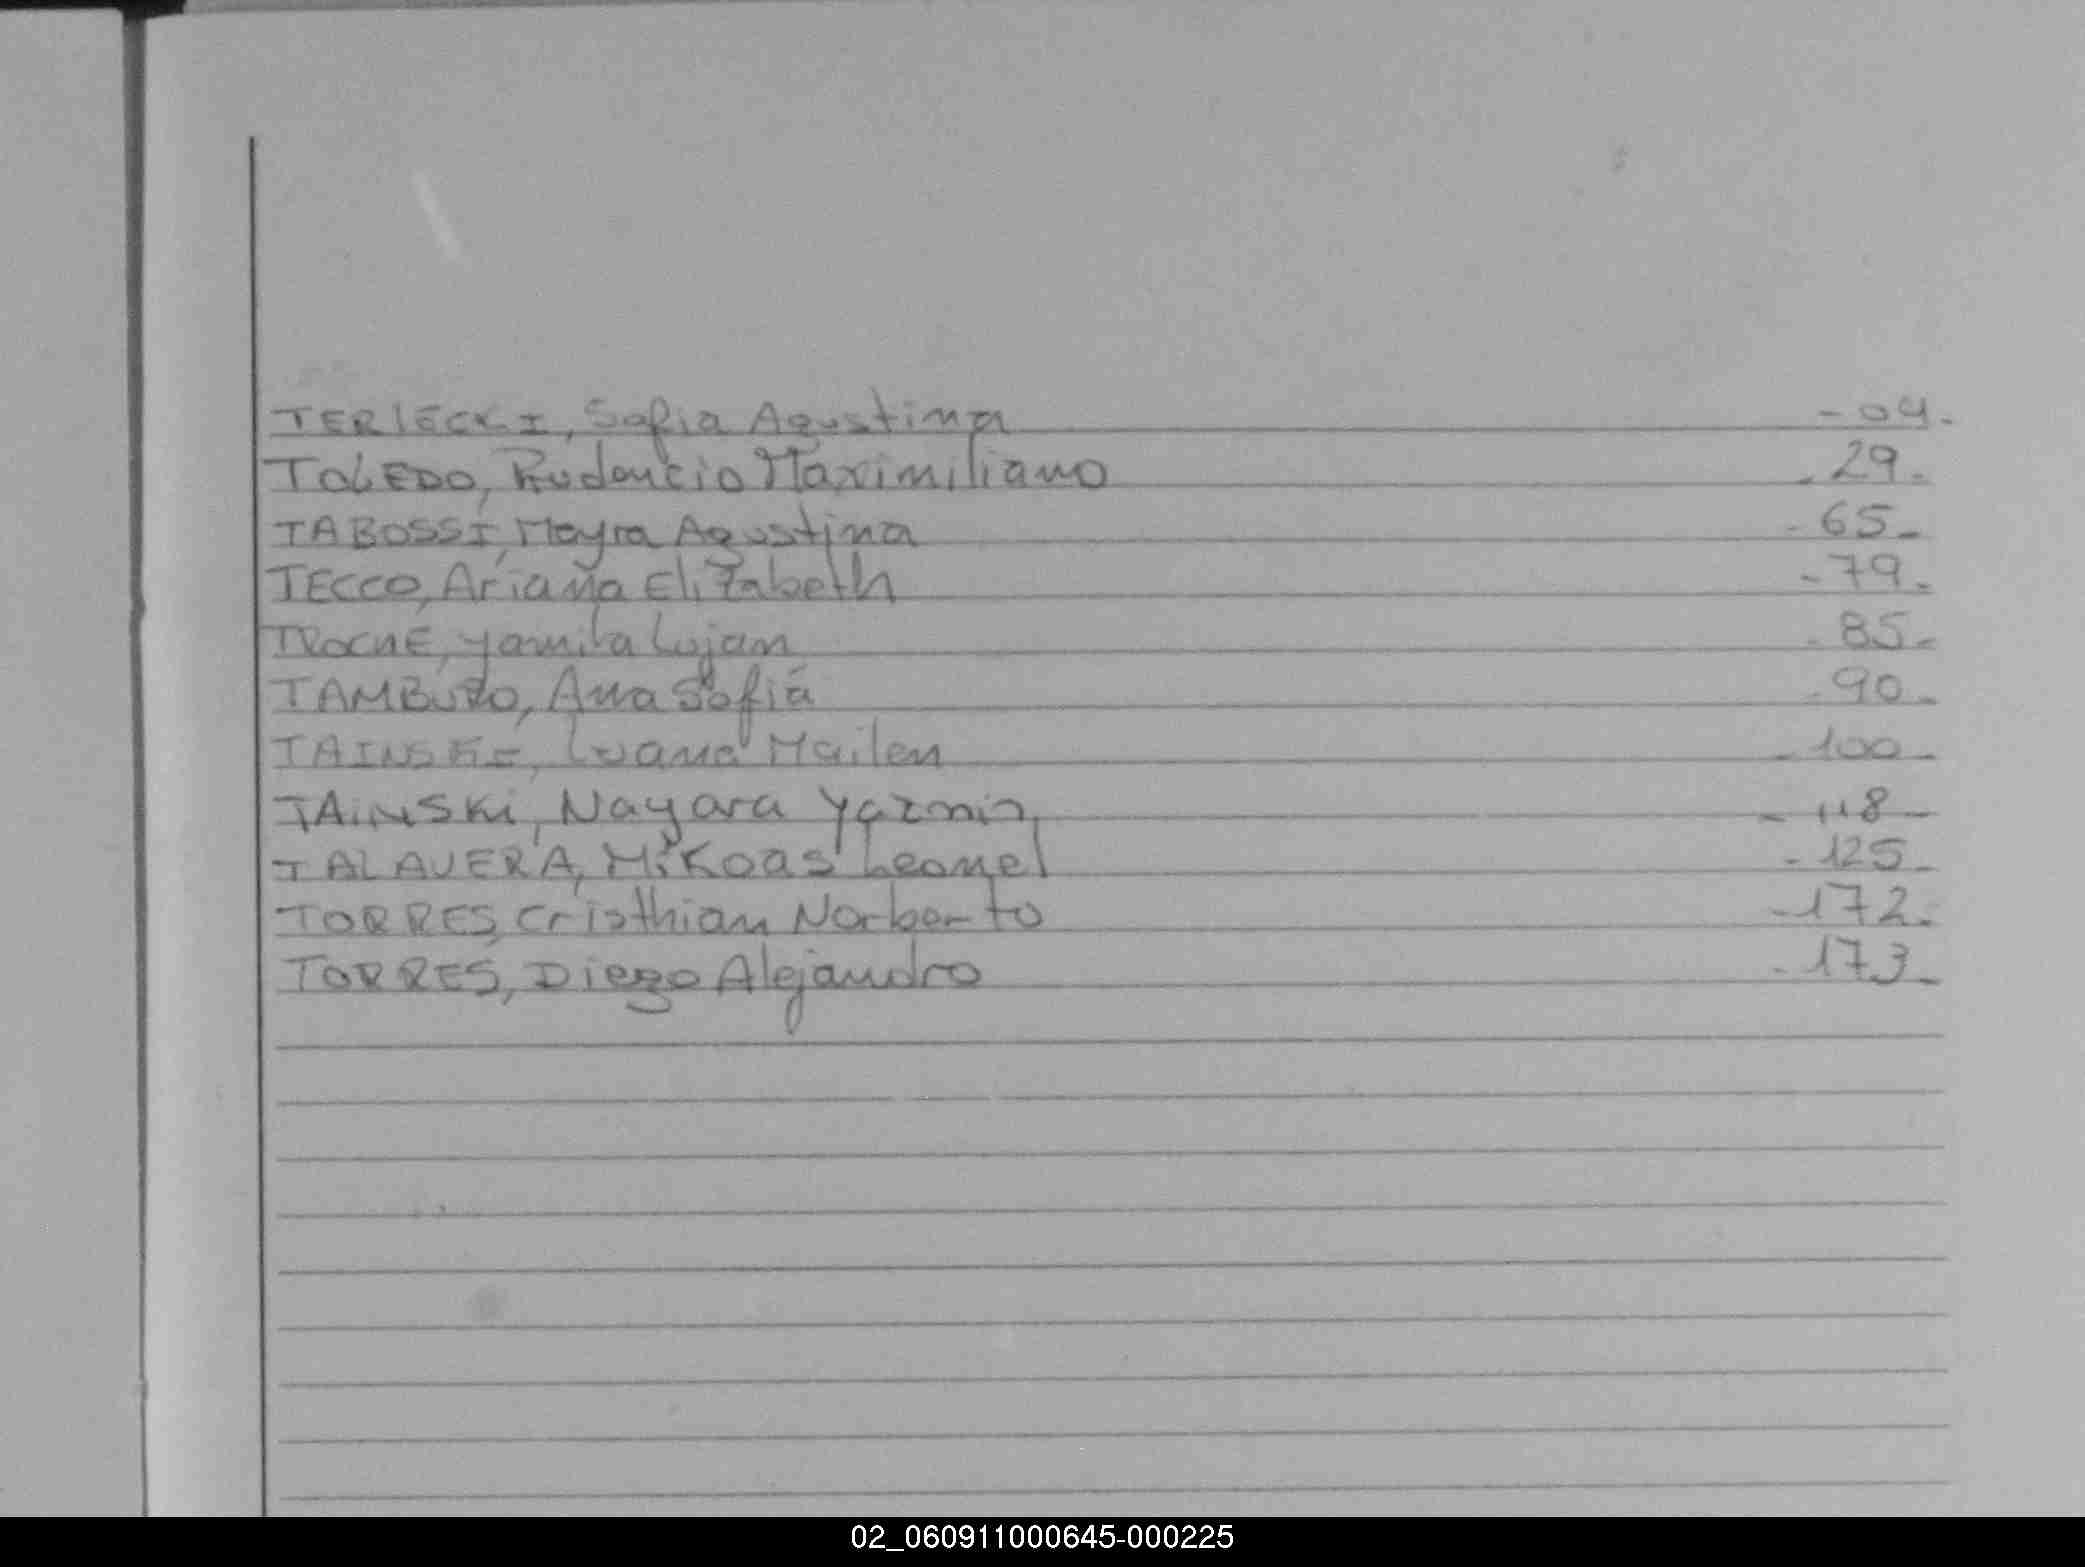 TERLECKI, Sofia Agustina -04-
TOLEDO, Rudencio Maximiliano -29-
TABOSSI, Mayra Agustina -65-
TECCO, Ariana Elizabeth -79-
TROCHE, Yamila Lujan -85-
TAMBURO, Ana Sofiá -90-
TAINSKI, Luana Mailen -100-
TAiNSKi, Nayara Yazmin -118-
TALAVERA, Leonel -125-
TORRES, Cristhian Norberto -172-
TORRES, Diego Alejandro -173-
02_060911000645-000225